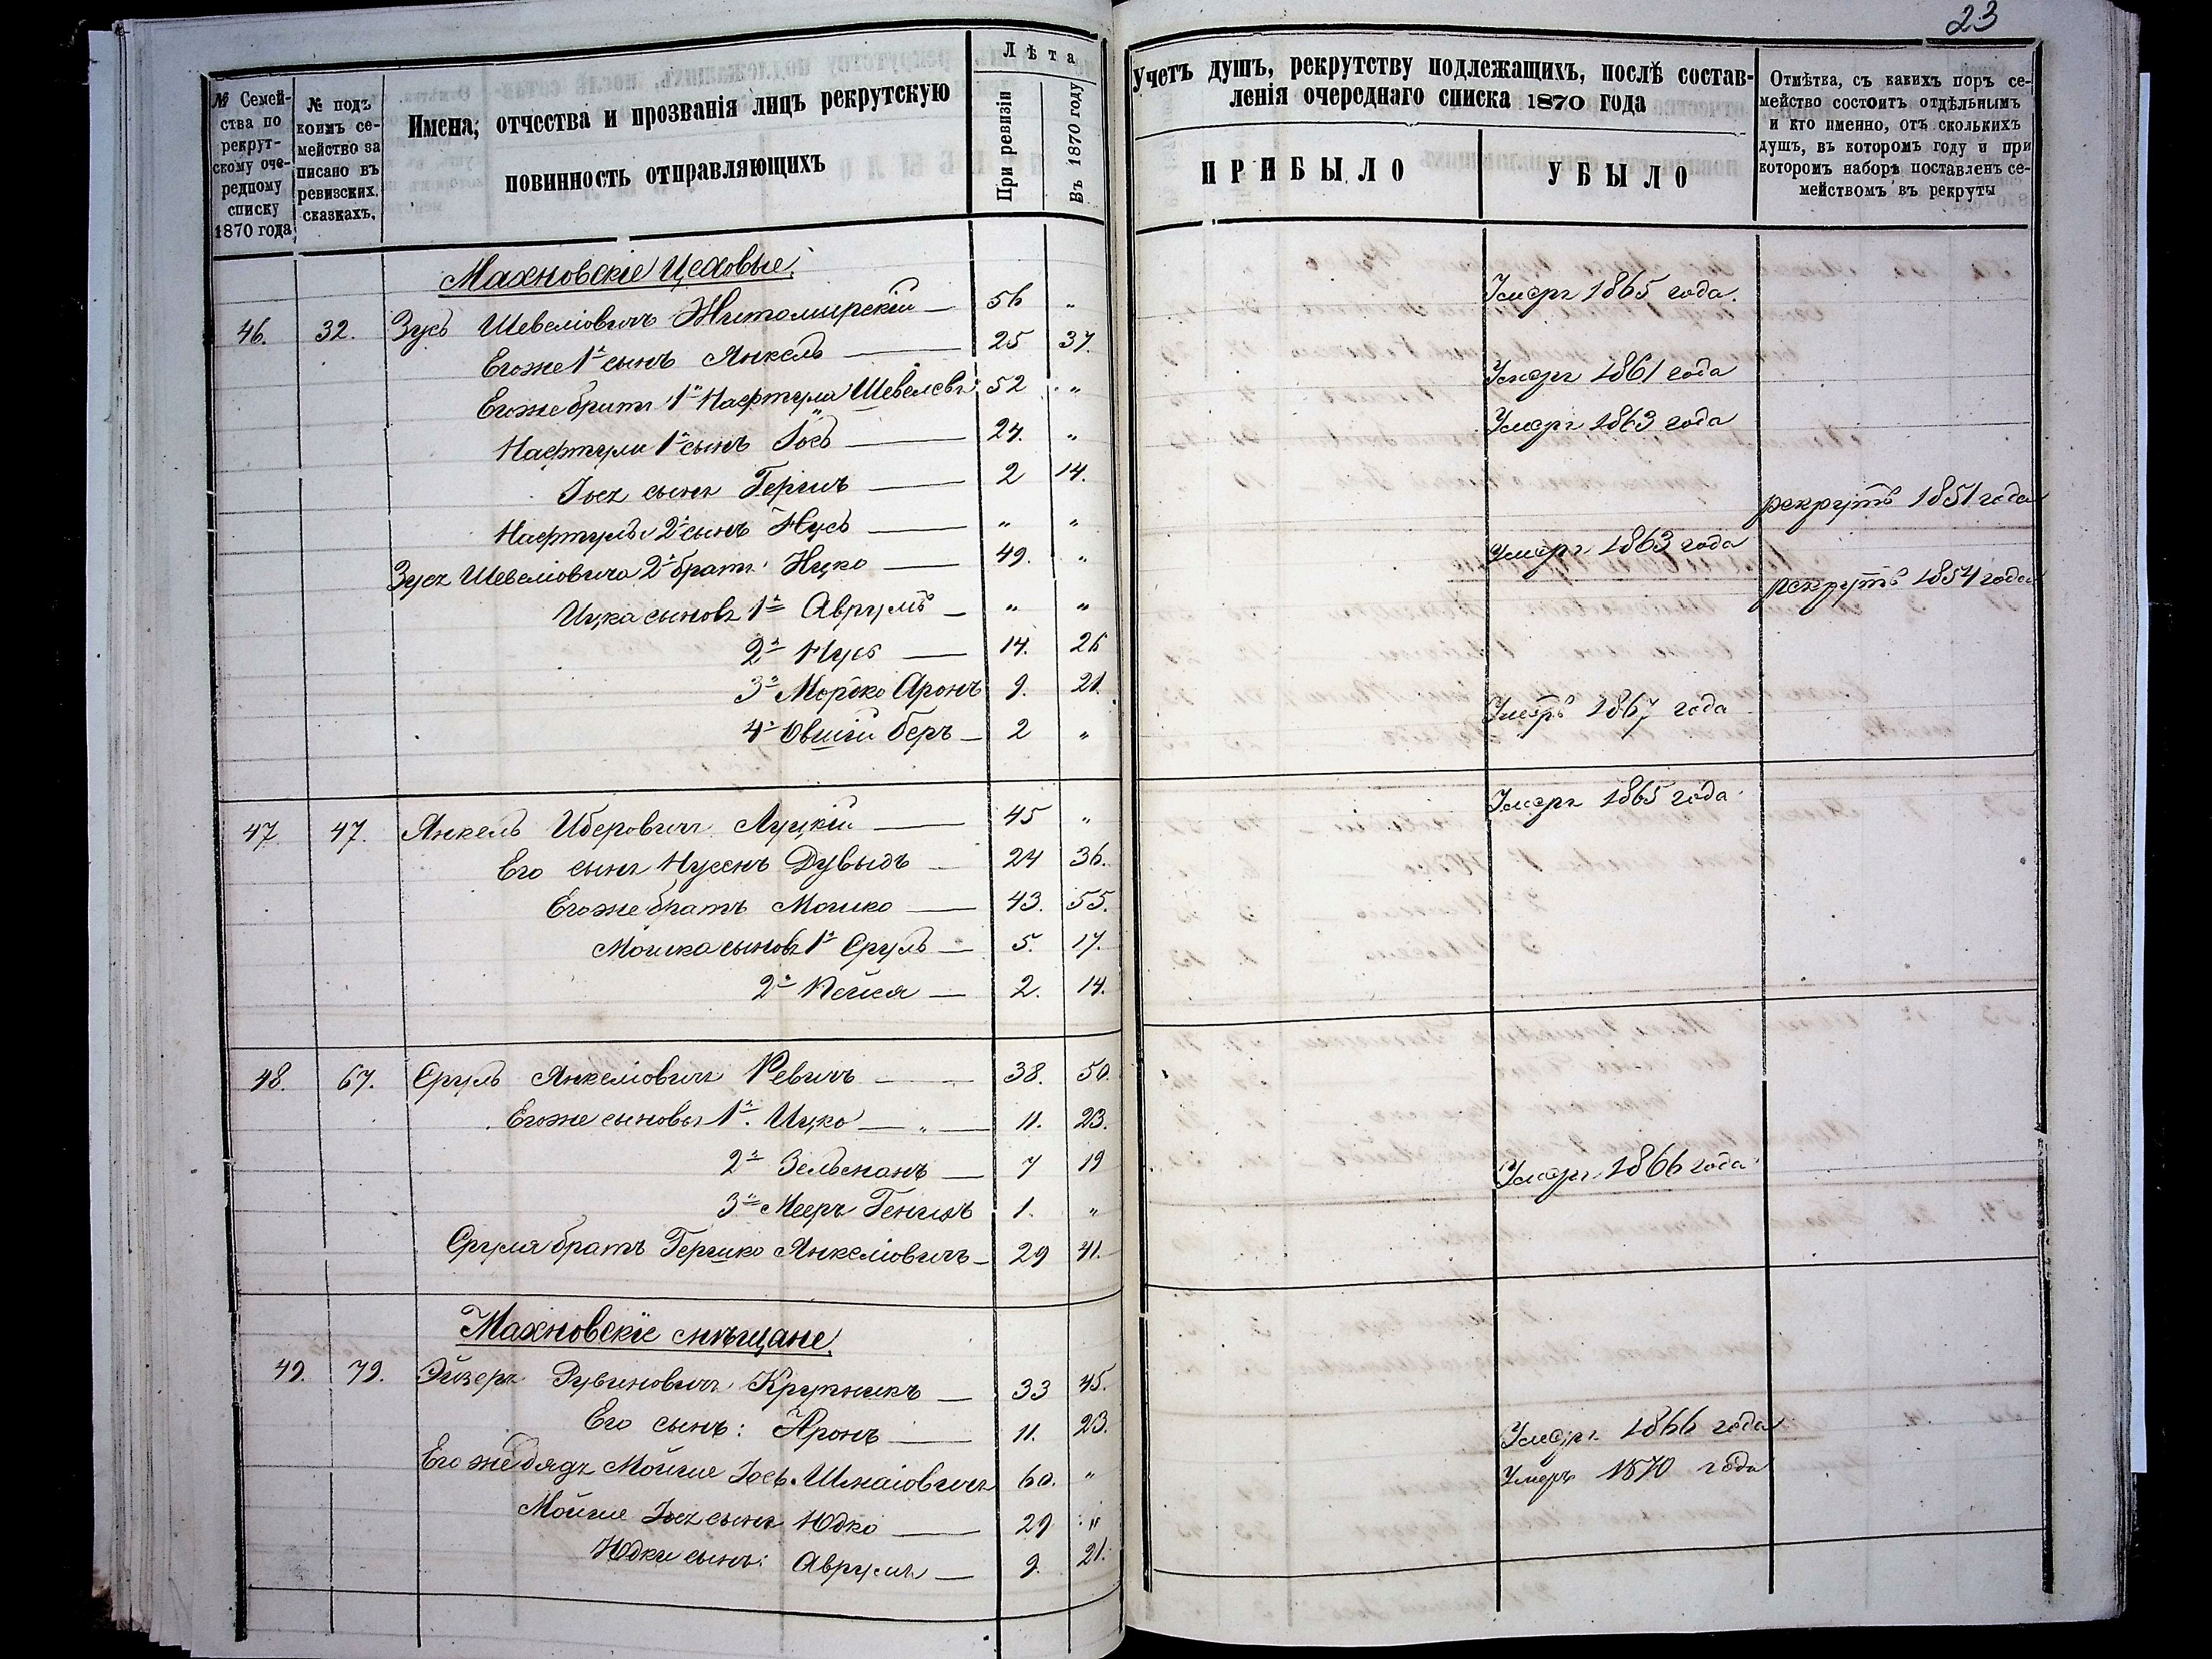 23
№ Семей-
ства по
рекрут-
скому оче-
редному
списку
1870 года
№ подъ
коимъ се-
мейство за
писано въ
ревизскихъ
сказкахъ.
Имена, отчества и прозванія лицъ рекрутскую
повинность отправляющихъ
Лѣта
При ревизіи
Въ 1870 году
Учетъ душъ, рекрутству подлежащихъ, послѣ состав-
ленія очереднаго списка 1870 года
ПРИБЫЛО
УБЫЛО
Отмѣтка, съ какихъ поръ се-
мейство состоитъ отдѣльнымъ
и кто именно, отъ сколькихъ
душъ, въ которомъ году и при
которомъ наборѣ поставленъ се-
мействомъ въ рекруты
Махновскіе Цеховые.
46. 32. Зусь Шевеліовичъ Житомирскій — 56 " Умеръ 1865 года.
Его же 1й сынъ Янкель — 25 37.
Его же братъ 1й Нафтула Шевелевъ 52 " Умеръ 1861 года
Нафтули 1й сынъ Іось — 24. " Умеръ 1863 года
Іося сынъ Гершъ — 2 14.
Нафтулы 2й сынъ Нусь — " " рекрутъ 1851 года
Зуся Шевеліовича 2й братъ Ицко — 49. " Умеръ 1863 года
Ицка сыновья 1й Аврумъ — " " рекрутъ 1854 года
2й Нусь — 14. 26
3й Мордко Аронъ 9. 21.
4й Овшій Беръ — 2 " Умеръ 1867 года
47 47. Янкель Иберовичъ Луцкій — 45 " Умеръ 1865 года
Его сынъ Нусенъ Дувыдъ — 24 36.
Его же братъ Мошко — 43. 55.
Мошка сыновья 1й Сруль — 5. 17.
2й — 2. 14.
48. 67. Сруль Янкеліовичъ Ревичъ — 38. 50.
Его же сыновья 1й Ицко — " — 11. 23.
2й Зельманъ — 7 19
3й Мееръ Генихъ 1. " Умеръ 1866 года
Сруля братъ Гершко Янкеліовичъ — 29 41.
Махновскіе мѣщане.
49. 79. Эйзеръ Рувиновичъ Крупникъ — 33 45.
Его сынъ: Аронъ — 11. 23.
Его же дядя Мойше Іось Шмаіовичъ 60. " Умеръ 1866 года
Мойше Іося сынъ Юдко — 29 " Умеръ 1870 года
Юдки сынъ: Аврумъ — 9. 21.